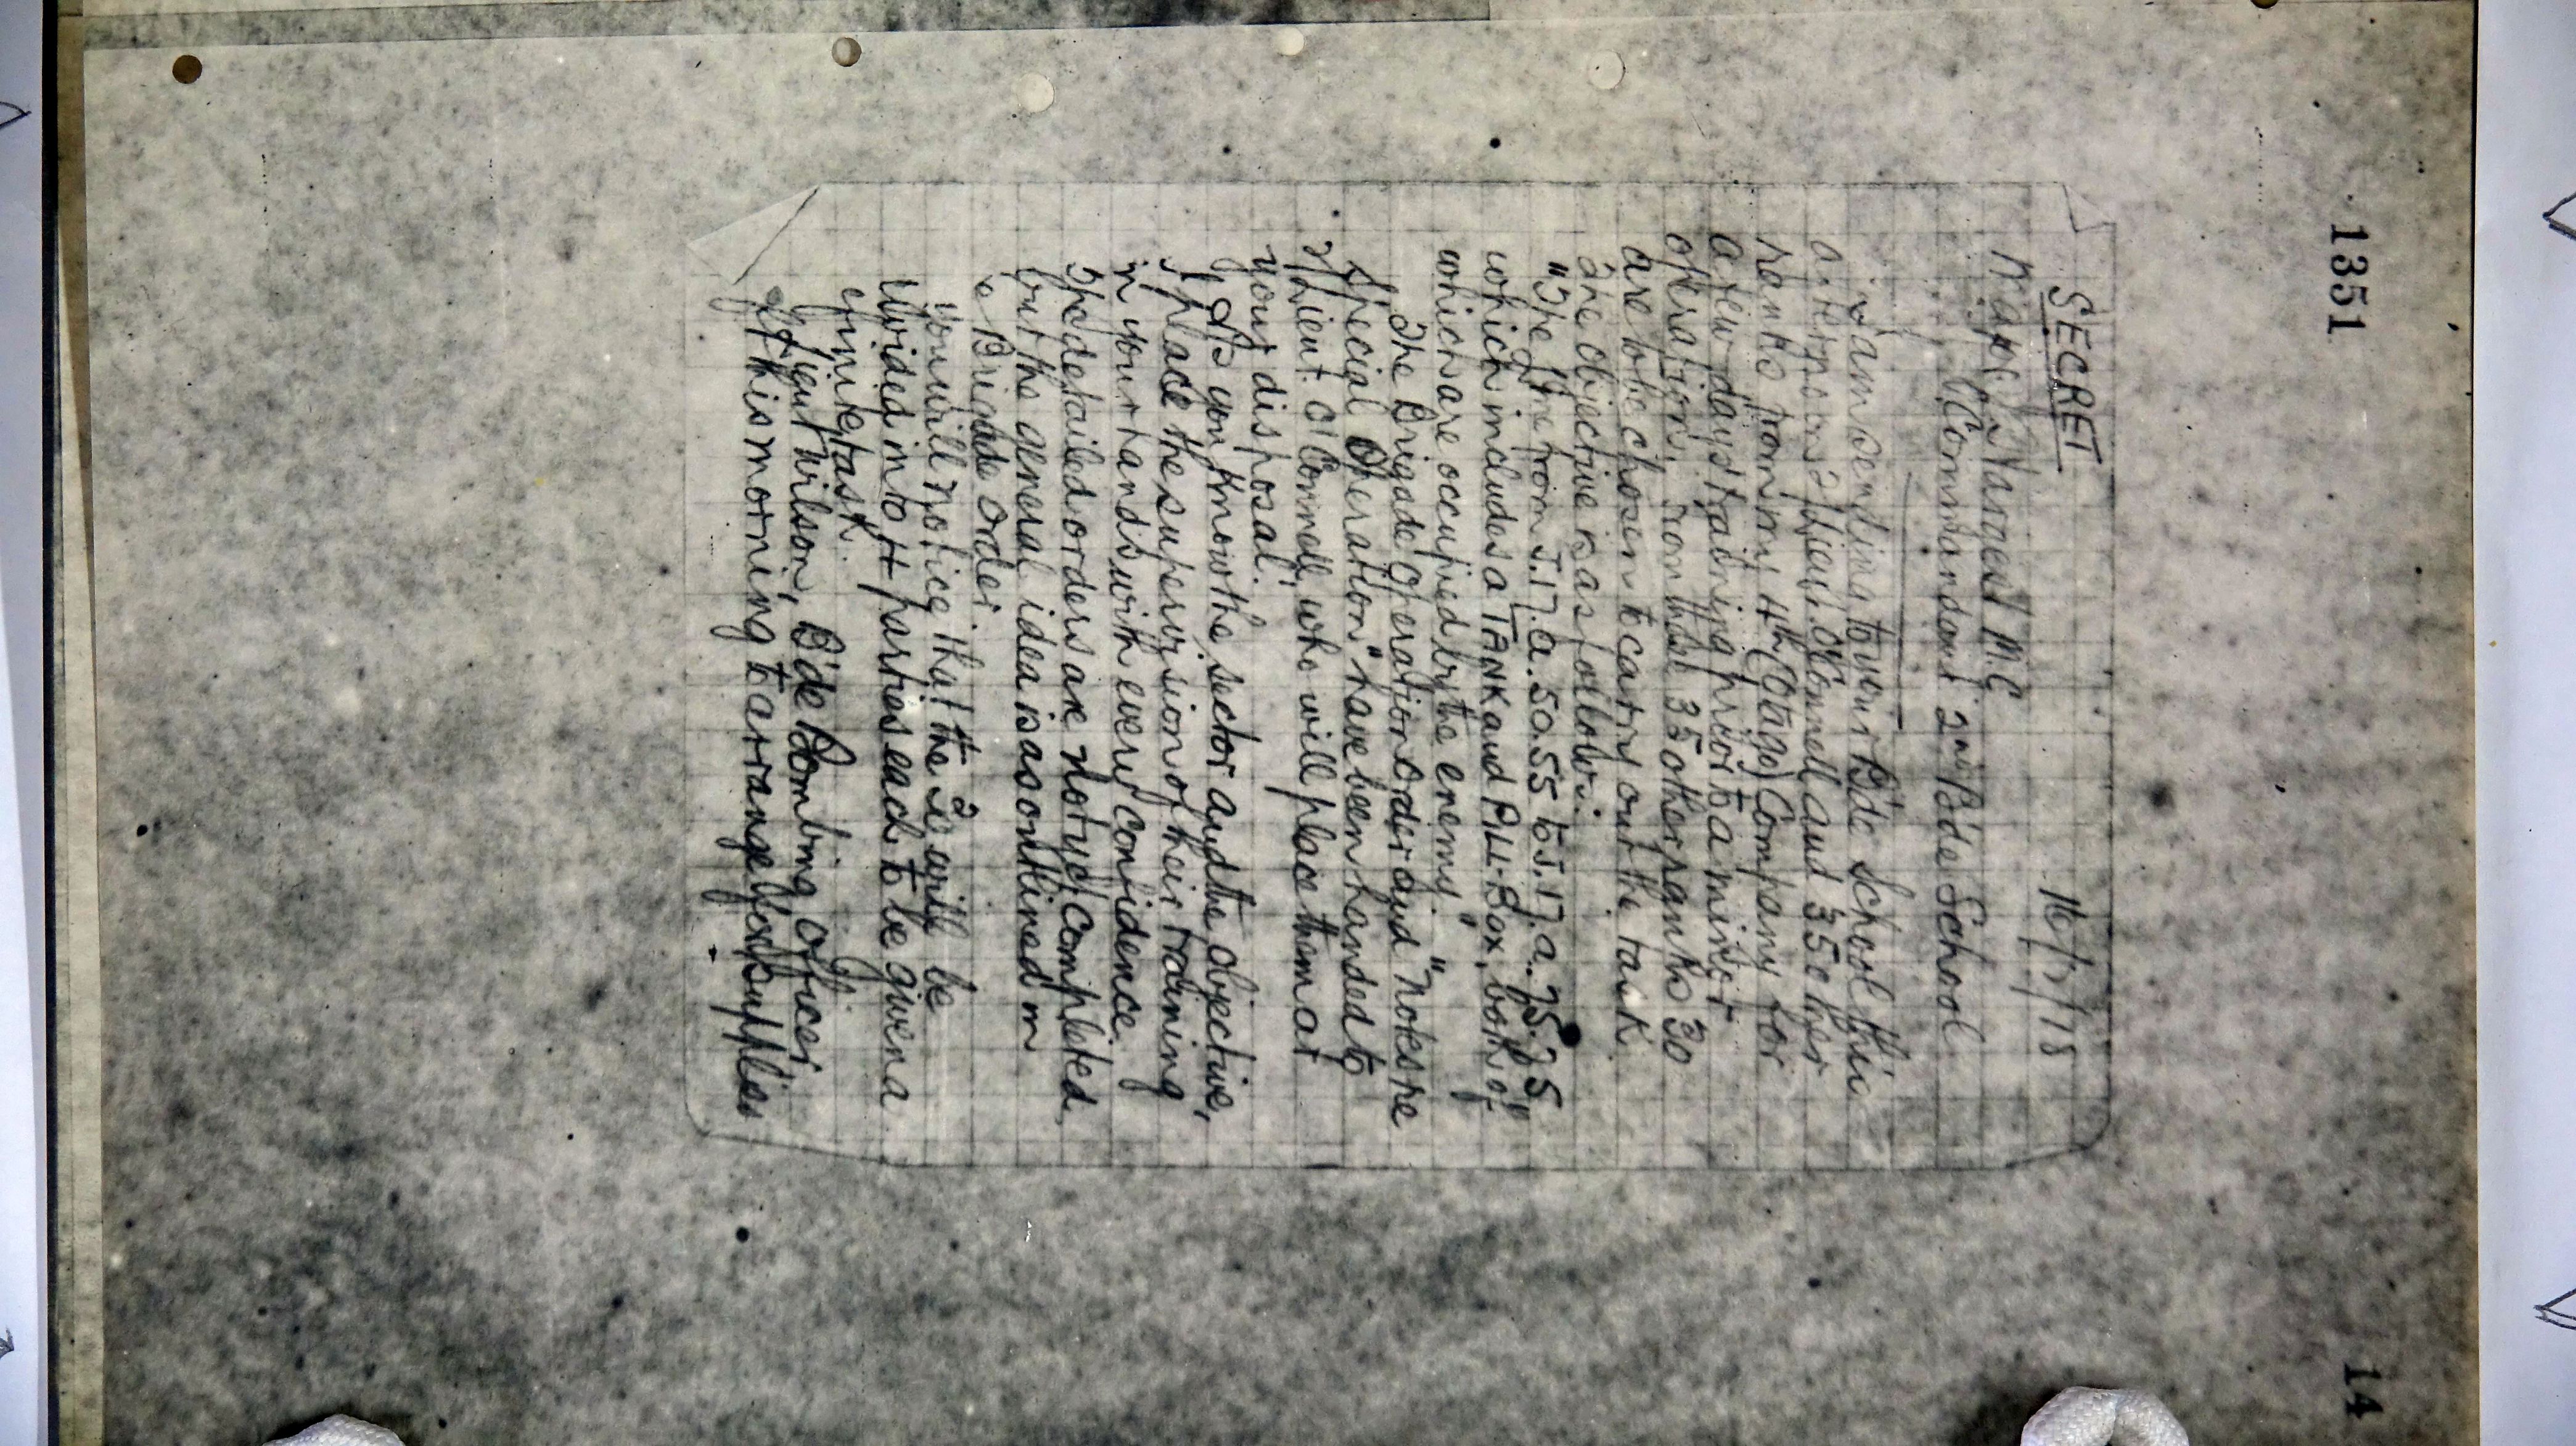 1351
14
SECRET 16/7/18
Major J. Hargest M.C.
Commandant 2nd B'de School
I am sending to your B'de School this
afternoon 2/Lieut. O'Connell and 35 other
ranks from my 4th (Otago) Company for
a few days training prior to a minor
operation. From these 35 other ranks 30
are to be chosen to carry out the task.
The objective is as follows:
"The line from J.17.a.50.55 to J.17.a.75.75"
which includes a TANK and PILL-BOX, both of
which are occupied by the enemy."
The Brigade Operation Order and "notes re
Special Operation" have been handed to
2/Lieut. O'Connell, who will place them at
your disposal.
As you know the sector and the objective,
I place the supervision of their training
in your hands with every confidence.
The detailed orders are not yet completed
but the general idea is as outlined in
Brigade order.
You will notice that the 30 will be
divided into 4 parties each to be given a
definite task.
Lieut Wilson, B'de Bombing Officer
this morning to arrange for supplies